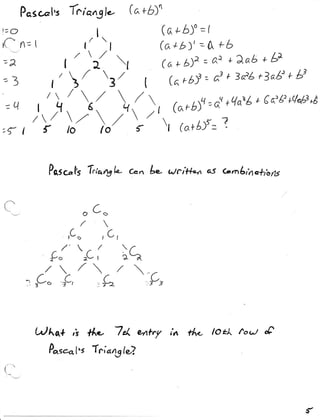 Pascal's Triangle (a+b)ⁿ
n=0 1 (a+b)⁰ = 1
n=1 1 1 (a+b)¹ = a + b
=2 1 2 1 (a+b)² = a² + 2ab + b²
=3 1 3 3 1 (a+b)³ = a³ + 3a²b + 3ab² + b³
=4 1 4 6 4 1 (a+b)⁴ = a⁴ + 4a³b + 6a²b² + 4ab³ + b
=5 1 5 10 10 5 1 (a+b)⁵ = ?
Pascals Triangle can be written as combinations
₀C₀
₁C₀ ₁C₁
₂C₀ ₂C₁ ₂C₂
₃C₀ ₃C₁ ₃C₂ ₃C₃
What is the 7th entry in the 10th row of
Pascal's Triangle?
5